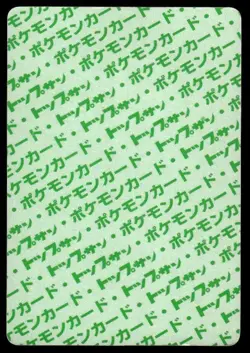 ポケモンカード・
トップサン・ポケモンカード
ポケモンカード・トップサン・
トップサン・ポケモンカード・
ポケモンカード・トップサン・
・トップサン・ポケモンカード
ポケモンカード・トップサン・
・トップサン・ポケモンカード
ポケモンカード・トップサン・
・トップサン・ポケモンカード
ポケモンカード・トップサン・
・トップサン・ポケモンカード
ポケモンカード・トップサン
ポケモンカード